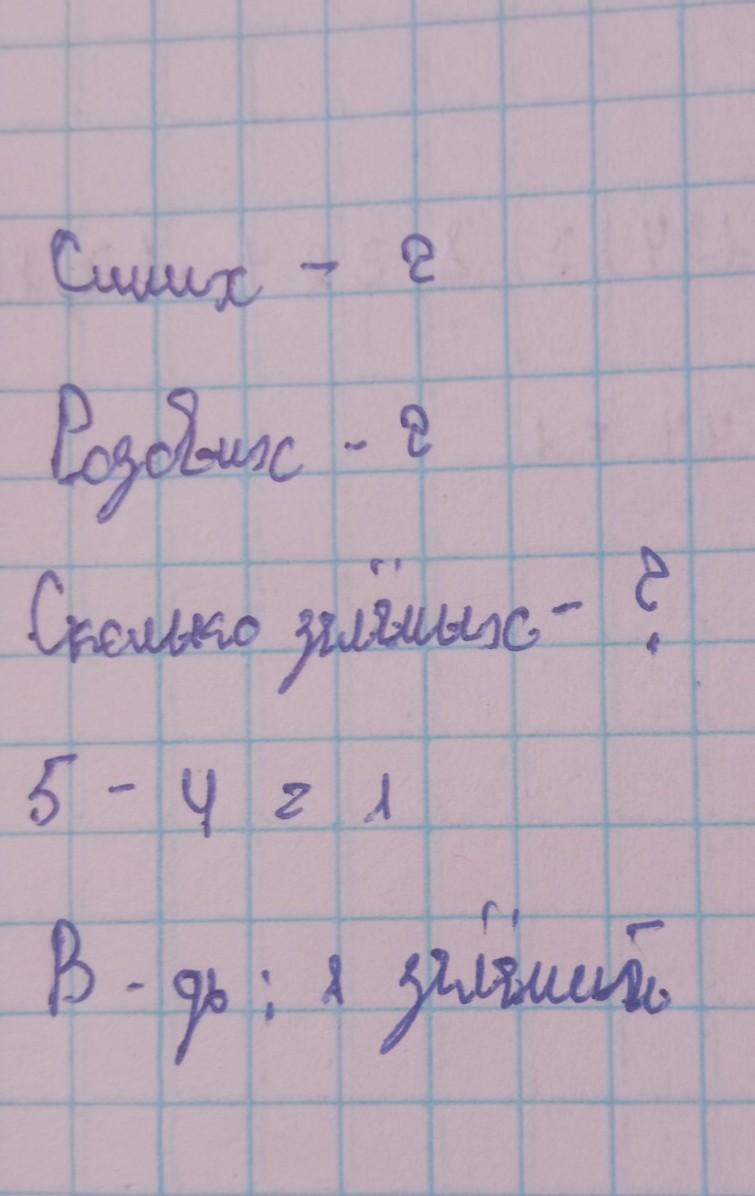 Синих - 2
Розовых - 2
Сколько зелёных - ?
5 - 4 = 1
В-дь: 1 зелёный